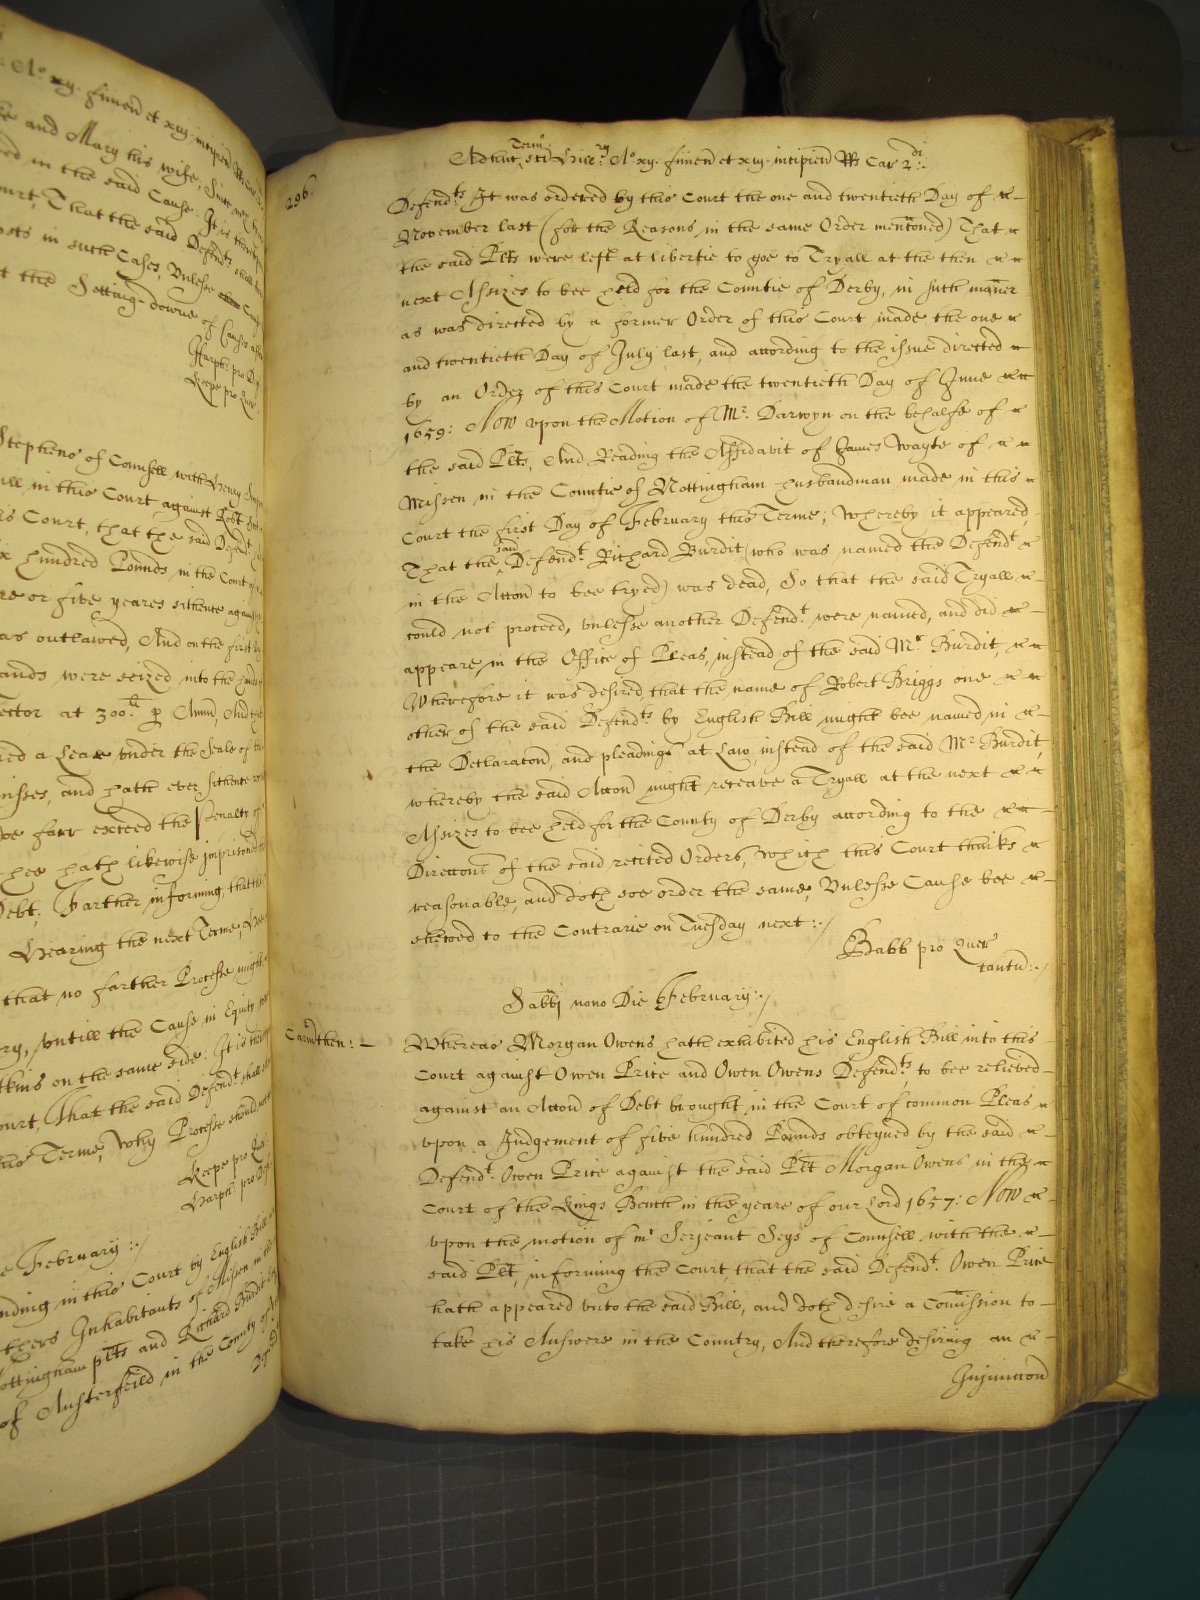 Ao xij finien et xiij incipien
and Mary his wife, Since
in the said Cause. It is
Court, That the said Defendts shall
Costs in such Cases, Unlesse
the Setting downe of Causes
Harpt: pro
Keepe pro Quer
Stephens of Counsell with Henry
Bill in this Court against Robt
Court, that the said Defendt
hundred Pounds in the Court
or five yeares sithence against
was outlawed, And on the first
Lands were seized into the hands
at 300li p Annu, And
a Lease under the Seale of
and hath ever sithence
farr exceed the Penalty of
hee hath likewise imprisoned
Debt. Farther informing, that
Hearing the next Terme,
that no farther Processe might
untill the Cause in Equity
on the same side: It is
Court, That the said Defendt shall
Terme, Why Processe should not
Keepe pro Quer
Harpt: pro Def
February :./
in this Court by English Bill
Inhabitants of Missen in the
Nottingham plts and Richard Burdit
of Austerfeild in the County of
296.
Adhuc Termo Sci Hillry Ao xij finien et xiij incipien Rs Car 2di:
Defendts It was ordered by this Court the one and twentieth Day of
November last (for the Reasons in the same Order mentoned) That
the said Plts were left at libertie to goe to Tryall at the then
next Assizes to bee held for the Countie of Derby, in such maner
as was directed by a former Order of this Court made the one
and twentieth Day of July last, and according to the issue directed
by an Order of this Court made the twentieth Day of June
1659: Now upon the Motion of Mr. Darwyn on the behalfe of
the said Plts, And Reading the Affidavit of James Wayte of
Missen in the Countie of Nottingham husbandman made in this
Court the first Day of February this Terme; Whereby it appeared,
That the said Defendt Richard Burdit (who was named the Defendt
in the Accon to bee tryed) was dead, So that the said Tryall
could not proceed, unlesse another Defendt were named, and did
appeare in the Office of Pleas, instead of the said Mr Burdit,
Wherefore it was desired that the name of Robert Briggs one
other of the said Defendts by English Bill might bee named in
the Declaraton, and pleadings at Law, instead of the said Mr Burdit,
whereby the said Accon might receave a Tryall at the next
Assizes to bee held for the County of Derby according to the
Direccons of the said recited Orders, Which this Court thinks
reasonable, and doth soe order the same, Unlesse Cause bee
shewed to the Contrarie on Tuesday next :./
Babb pro Quer
tantu:./
Sabbi nono Die February:./
Carmthen: Whereas Morgan Owens hath exhibited his English Bill into this
Court against Owen Price and Owen Owens Defendts, to bee relieved
against an Accon of Debt brought in the Court of common Pleas
upon a Judgement of five hundred Pounds obteyned by the said
Defendt Owen Price against the said Plt Morgan Owens in the
Court of the Kings Bench in the yeare of our Lord 1657: Now
upon the motion of mr Serjeant Seys of Counsell with the
said Plt, informing the Court, that the said Defendt. Owen Price
hath appeared unto the said Bill, and doth desire a Comission to
take his Answere in the Country, And therefore desiring an
Injunccon